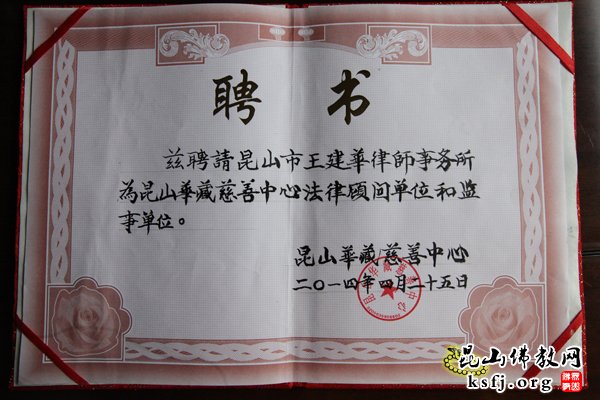 ksfj.org
聘 书
兹聘請昆山市王建華律師事务所
為昆山華藏慈善中心法律顾问单位和监
事单位。
昆山華藏慈善中心
二〇一四年四月二十五日
昆山佛教网
ksfj.org